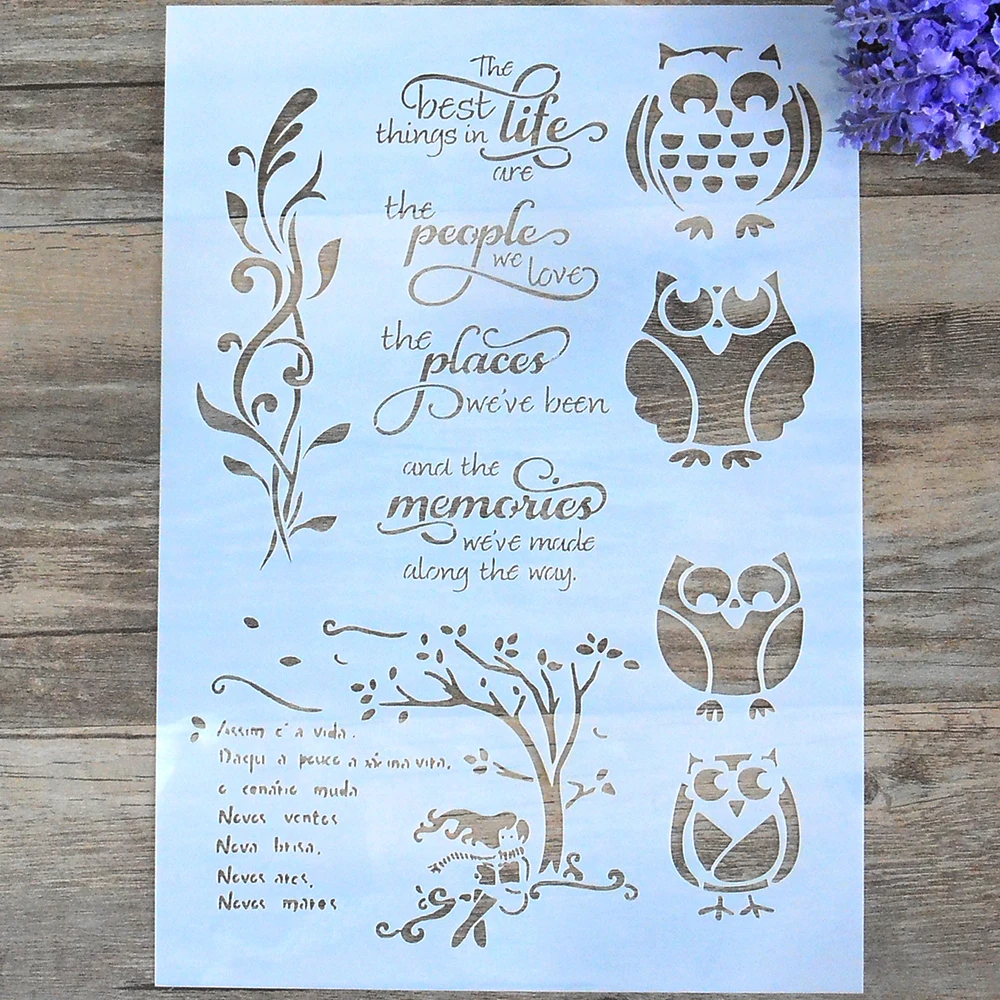 The
best life
things in
are
the
people
we love
the
places
we've been
and the
memories
we've made
along the way.
Assim é a vida.
Daqui a pouco a vira,
o cenário muda
Novos ventos
Nova brisa,
Novos ares,
Novos mares